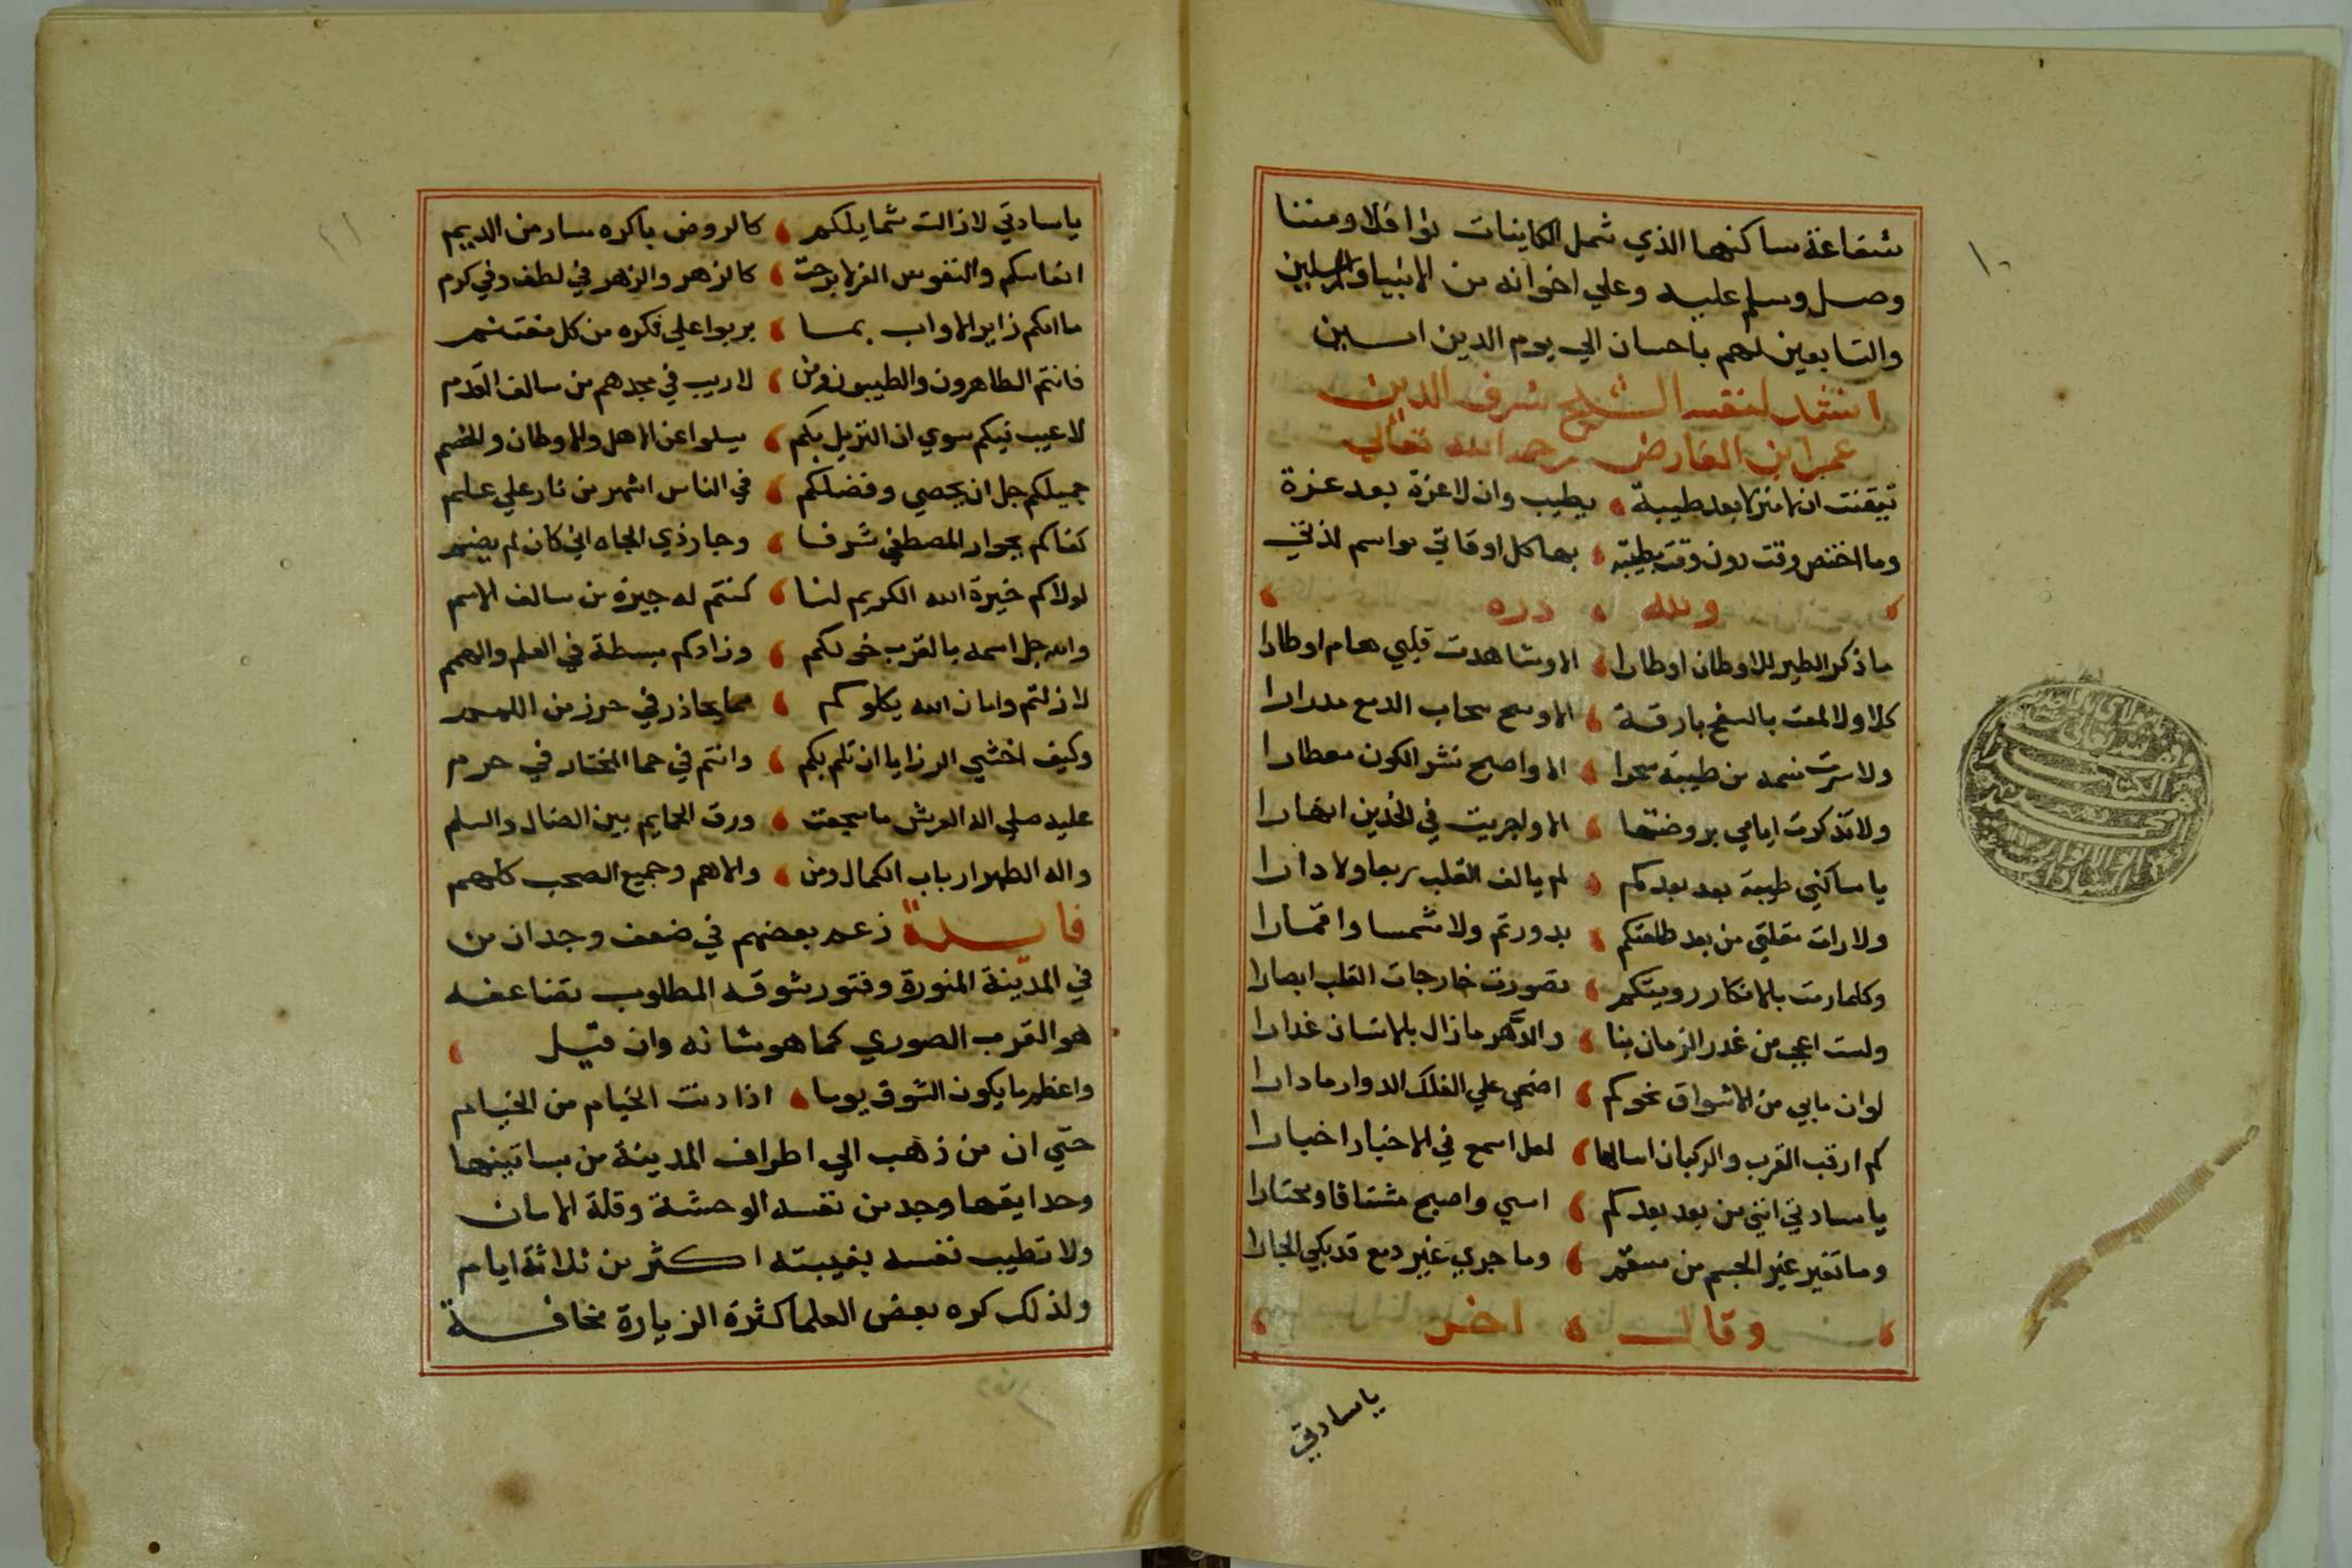 شفاعة ساكنها الذي شمل الكاينات نوافلا ومننا
وصل وسلم عليه وعلي اخوانه من الانبيا والمرسلين
والتابعين لهم باحسان الي يوم الدين امين
انشد لنفسه الشيخ شرف الدين
عمر ابن الفارض رحمه الله تعالي
تيقنت ان لا منزلا بعد طيبة يطيب وان لا عزة بعد عزة
وما اختص وقت دون وقت بطيبة بها كل اوقاتي مواسم لذتي
ولله دره
ما ذكر الطير للاوطان اوطارا الا وشاهدت قلبي هام اوطارا
كلا ولا لمعت بالسفح بارقة الا وسح سحاب الدمع مدرارا
ولا سرت نسمه من طيبة سحرا الا واصبح نشر الكون معطارا
ولا تذكرت ايامي بروضتها الا ولجريت في الخدين انهارا
يا ساكني طيبة بعد بعدكم لم يالف القلب ربعا ولا دارا
ولا رات مقلتي من بعد طلعتكم بدور تم ولا شمسا واقمارا
وكلما رمت بالافكار رويتكم تصورت خارجات القلب ابصارا
ولست اعجب من غدر الزمان بنا والدهر ما زال بالانسان غدارا
لو ان ما بي من الاشواق نحوكم اضحي علي الفلك الدوار ما دارا
كم ارقب القرب والركبان اسالها لعل اسمع في الاخبار اخبارا
يا سادتي انني من بعد بعدكم امسي واصبح مشتاقا ومحتارا
وما تغير غير الجسم من سقم وما جري غير دمع قد بكي الجارا
وقال اخر
يا سادتي
١٠
يا سادتي لا زالت شمايلكم كالروض باكره سار من الديم
انفاسكم والنفوس الغر لا برحت كالزهر والزهر في لطف وفي كرم
ما امكم زاير الا واب بما يربوا علي فكره من كل مغتنم
فانتم الطاهرون والطيبون ومن لا ريب في مجدهم من سالف القدم
لا عيب فيكم سوي ان النزيل بكم يسلوا عن الاهل والاوطان والحشم
جميلكم جل ان يحصي وفضلكم في الناس اشهر من نار علي علم
كفاكم بجوار المصطفي شرفا وجار ذي الجاه اني كان لم يضم
لولاكم خيرة الله الكريم لنا كنتم له جيرة من سالف الامم
والله جل اسمه بالقرب خولكم وزادكم بسطة في العلم والهمم
لا زلتم وامان الله يكلوكم مما يحاذر في حرز من اللمم
وكيف اخشي الرزايا ان تلم بكم وانتم في حما المختار في حرم
عليه صلي اله العرش ما سجعت ورق الحمايم بين الضال والسلم
واله الطهر ارباب الكمال ومن والاهم وجميع الصحب كلهم
فايدة زعم بعضهم في ضعف وجدان من
في المدينة المنورة وفتور شوقه المطلوب تضاعفه
هو القرب الصوري كما هو شانه وان قيل
واعظم ما يكون الشوق يوما اذا دنت الخيام من الخيام
حتي ان من ذهب الي اطراف المدينة من بساتينها
وحدايقها وجد من نفسه الوحشة وقلة الامان
ولا تطيب نفسه بغيبته اكثر من ثلاثة ايام
ولذلك كره بعض العلما كثرة الزيارة مخافة